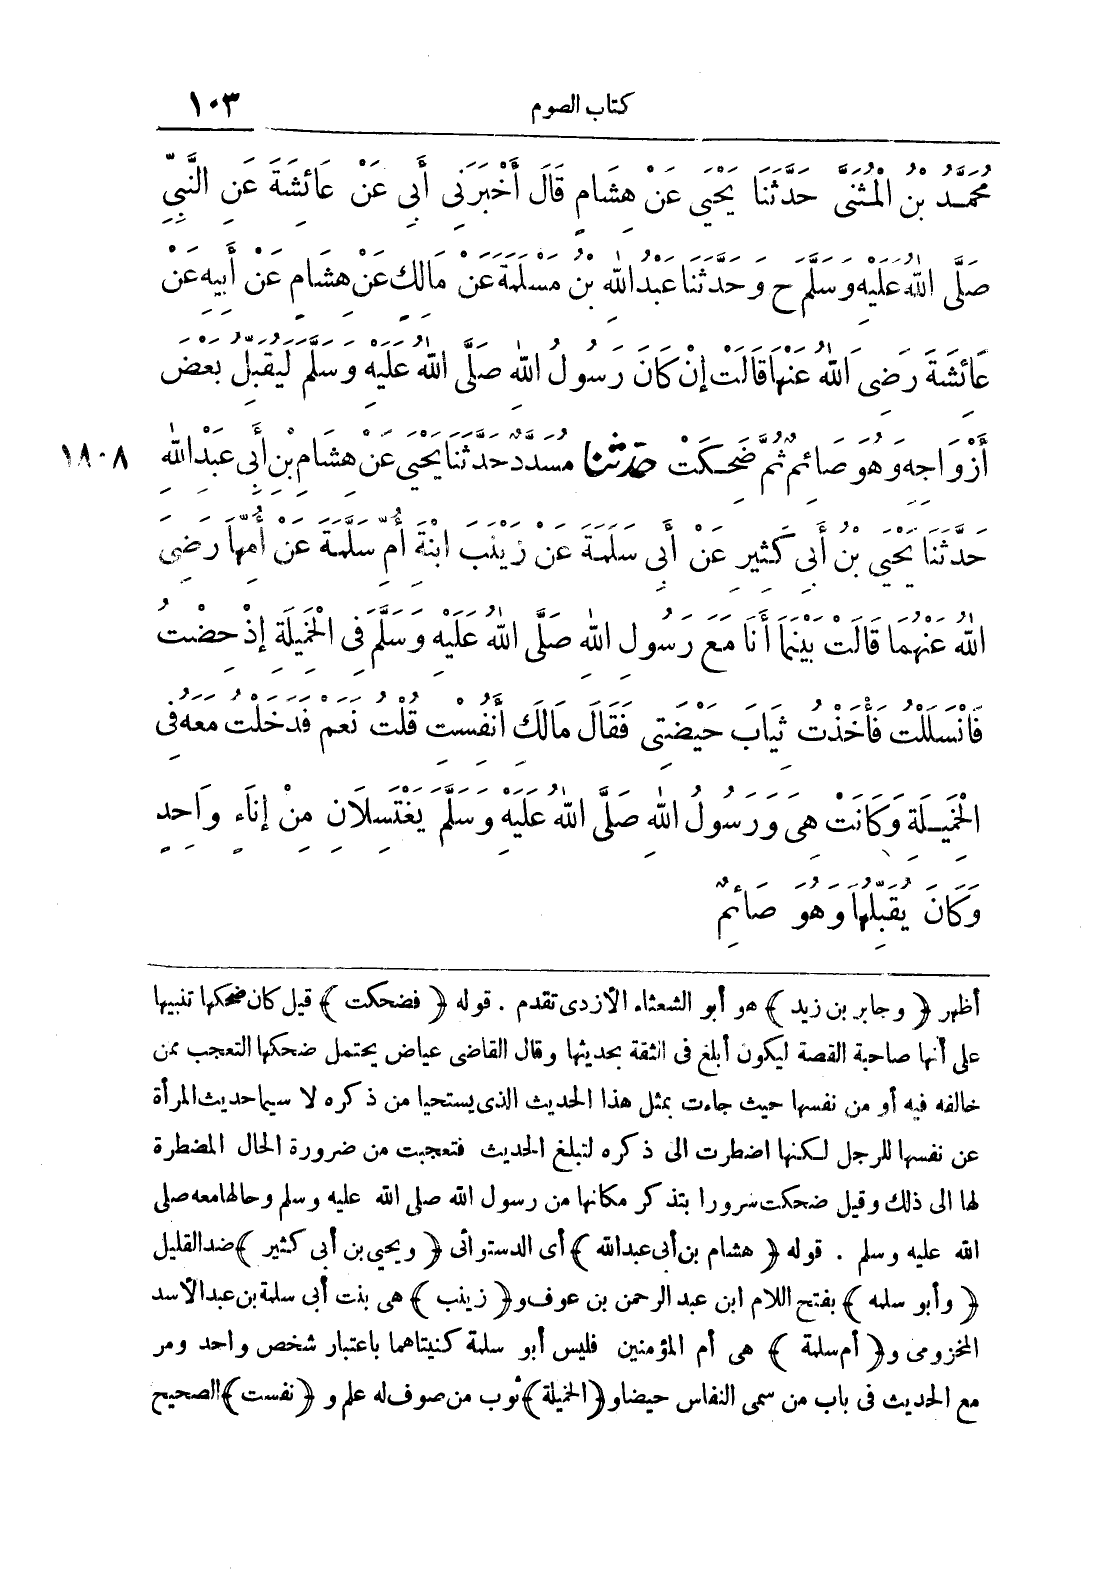 كتاب الصوم ١٠٣
مُحَمَّدُ بْنُ الْمُثَنَّى حَدَّثَنَا يَحْيَى عَنْ هِشَامٍ قَالَ أَخْبَرَنِى أَبِى عَنْ عَائِشَةَ عَنِ النَّبِيِّ
صَلَّى اللهُ عَلَيْهِ وَسَلَّمَ ح وَحَدَّثَنَا عَبْدُ اللهِ بْنُ مَسْلَمَةَ عَنْ مَالِكٍ عَنْ هِشَامٍ عَنْ أَبِيهِ عَنْ
عَائِشَةَ رَضِىَ اللهُ عَنْهَا قَالَتْ إِنْ كَانَ رَسُولُ اللهِ صَلَّى اللهُ عَلَيْهِ وَسَلَّمَ لَيُقَبِّلُ بَعْضَ
أَزْوَاجِهِ وَهُوَ صَائِمٌ ثُمَّ ضَحِكَتْ حَدَّثَنَا مُسَدَّدٌ حَدَّثَنَا يَحْيَى عَنْ هِشَامِ بْنِ أَبِى عَبْدِ اللهِ ١٨٠٨
حَدَّثَنَا يَحْيَى بْنُ أَبِى كَثِيرٍ عَنْ أَبِى سَلَمَةَ عَنْ زَيْنَبَ ابْنَةِ أُمِّ سَلَمَةَ عَنْ أُمِّهَا رَضِىَ
اللهُ عَنْهُمَا قَالَتْ بَيْنَمَا أَنَا مَعَ رَسُولِ اللهِ صَلَّى اللهُ عَلَيْهِ وَسَلَّمَ فِى الْخَمِيلَةِ إِذْ حِضْتُ
فَانْسَلَلْتُ فَأَخَذْتُ ثِيَابَ حَيْضَتِى فَقَالَ مَالَكِ أَنُفِسْتِ قُلْتُ نَعَمْ فَدَخَلْتُ مَعَهُ فِى
الْخَمِيلَةِ وَكَانَتْ هِىَ وَرَسُولُ اللهِ صَلَّى اللهُ عَلَيْهِ وَسَلَّمَ يَغْتَسِلَانِ مِنْ إِنَاءٍ وَاحِدٍ
وَكَانَ يُقَبِّلُهَا وَهُوَ صَائِمٌ
أظهر ﴿ وجابر بن زيد ﴾ هو أبو الشعثاء الأزدى تقدم . قوله ﴿ فضحكت ﴾ قيل كان ضحكها تنبيها
على أنها صاحبة القصة ليكون أبلغ فى الثقة بحديثها وقال القاضى عياض يحتمل ضحكها التعجب ممن
خالفه فيه أو من نفسها حيث جاءت بمثل هذا الحديث الذى يستحيا من ذكره لا سيما حديث المرأة
عن نفسها للرجل لكنها اضطرت الى ذكره لتبلغ الحديث فتعجبت من ضرورة الحال المضطرة
لها الى ذلك وقيل ضحكت سرورا بتذكر مكانها من رسول الله صلى الله عليه وسلم وحالها معه صلى
الله عليه وسلم . قوله ﴿ هشام بن أبى عبدالله ﴾ أى الدستوائى ﴿ ويحيى بن أبى كثير ﴾ ضد القليل
﴿ وأبو سلمه ﴾ بفتح اللام ابن عبد الرحمن بن عوف و﴿ زينب ﴾ هى بنت أبى سلمة بن عبد الأسد
المخزومى و﴿ أم سلمة ﴾ هى أم المؤمنين فليس أبو سلمة كنيتاهما باعتبار شخص واحد ومر
مع الحديث فى باب من سمى النفاس حيضا و﴿ الخميلة ﴾ ثوب من صوف له علم و ﴿ نفست ﴾ الصحيح